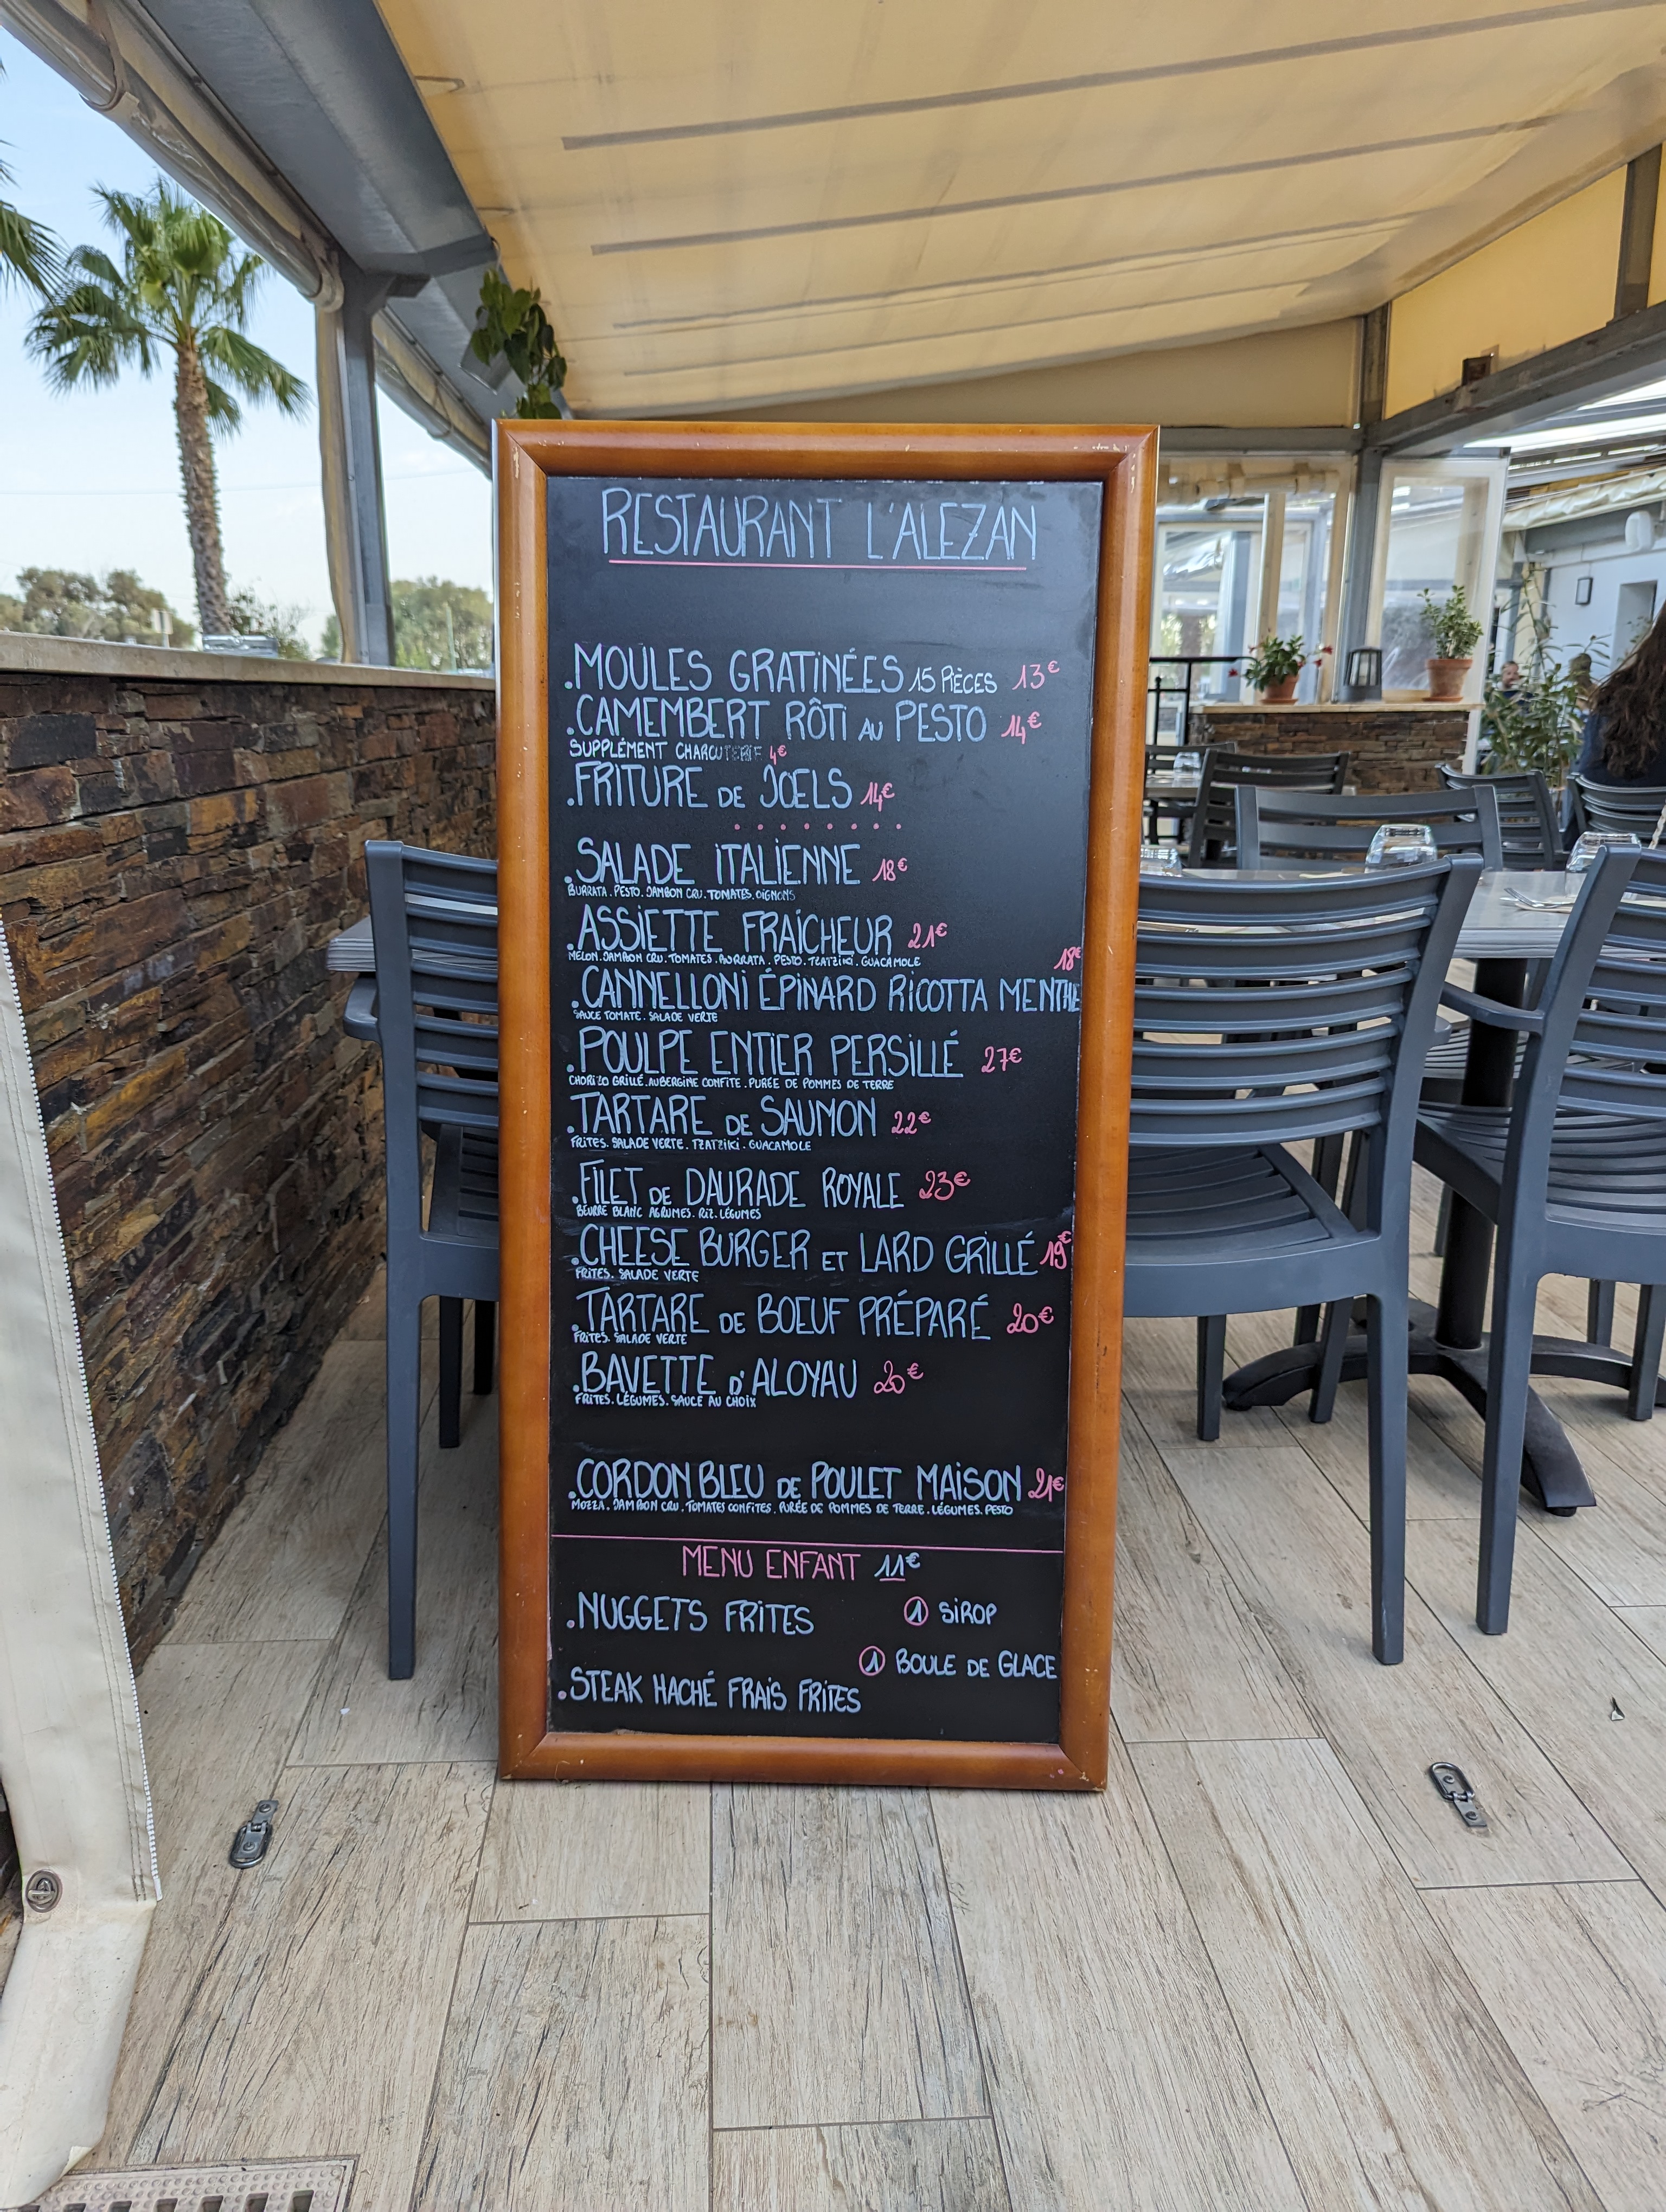 RESTAURANT L'ALEZAN
.MOULES GRATINÉES 15 PIÈCES 13€
.CAMEMBERT RÔTI AU PESTO 14€
SUPPLÉMENT CHARCUTERIE 4€
.FRITURE DE JOELS 14€
.SALADE ITALIENNE 18€
BURRATA . PESTO . JAMBON CRU . TOMATES . OIGNONS
.ASSIETTE FRAICHEUR 21€
MELON . JAMBON CRU . TOMATES . BURRATA . PESTO . TZATZIKI . GUACAMOLE
18€
.CANNELLONI ÉPINARD RICOTTA MENTHE
SAUCE TOMATE . SALADE VERTE
.POULPE ENTIER PERSILLÉ 27€
CHORIZO GRILLÉ . AUBERGINE CONFITE . PURÉE DE POMMES DE TERRE
.TARTARE DE SAUMON 22€
FRITES . SALADE VERTE . TZATZIKI . GUACAMOLE
.FILET DE DAURADE ROYALE 23€
BEURRE BLANC AGRUMES . RIZ . LÉGUMES
.CHEESE BURGER ET LARD GRILLÉ 19€
FRITES . SALADE VERTE
.TARTARE DE BOEUF PRÉPARÉ 20€
FRITES . SALADE VERTE
.BAVETTE D'ALOYAU 20€
FRITES . LÉGUMES . SAUCE AU CHOIX
.CORDON BLEU DE POULET MAISON 21€
MOZZA . JAMBON CRU . TOMATES CONFITES . PURÉE DE POMMES DE TERRE . LÉGUMES . PESTO
MENU ENFANT 11€
.NUGGETS FRITES 1 SIROP
1 BOULE DE GLACE
.STEAK HACHÉ FRAIS FRITES